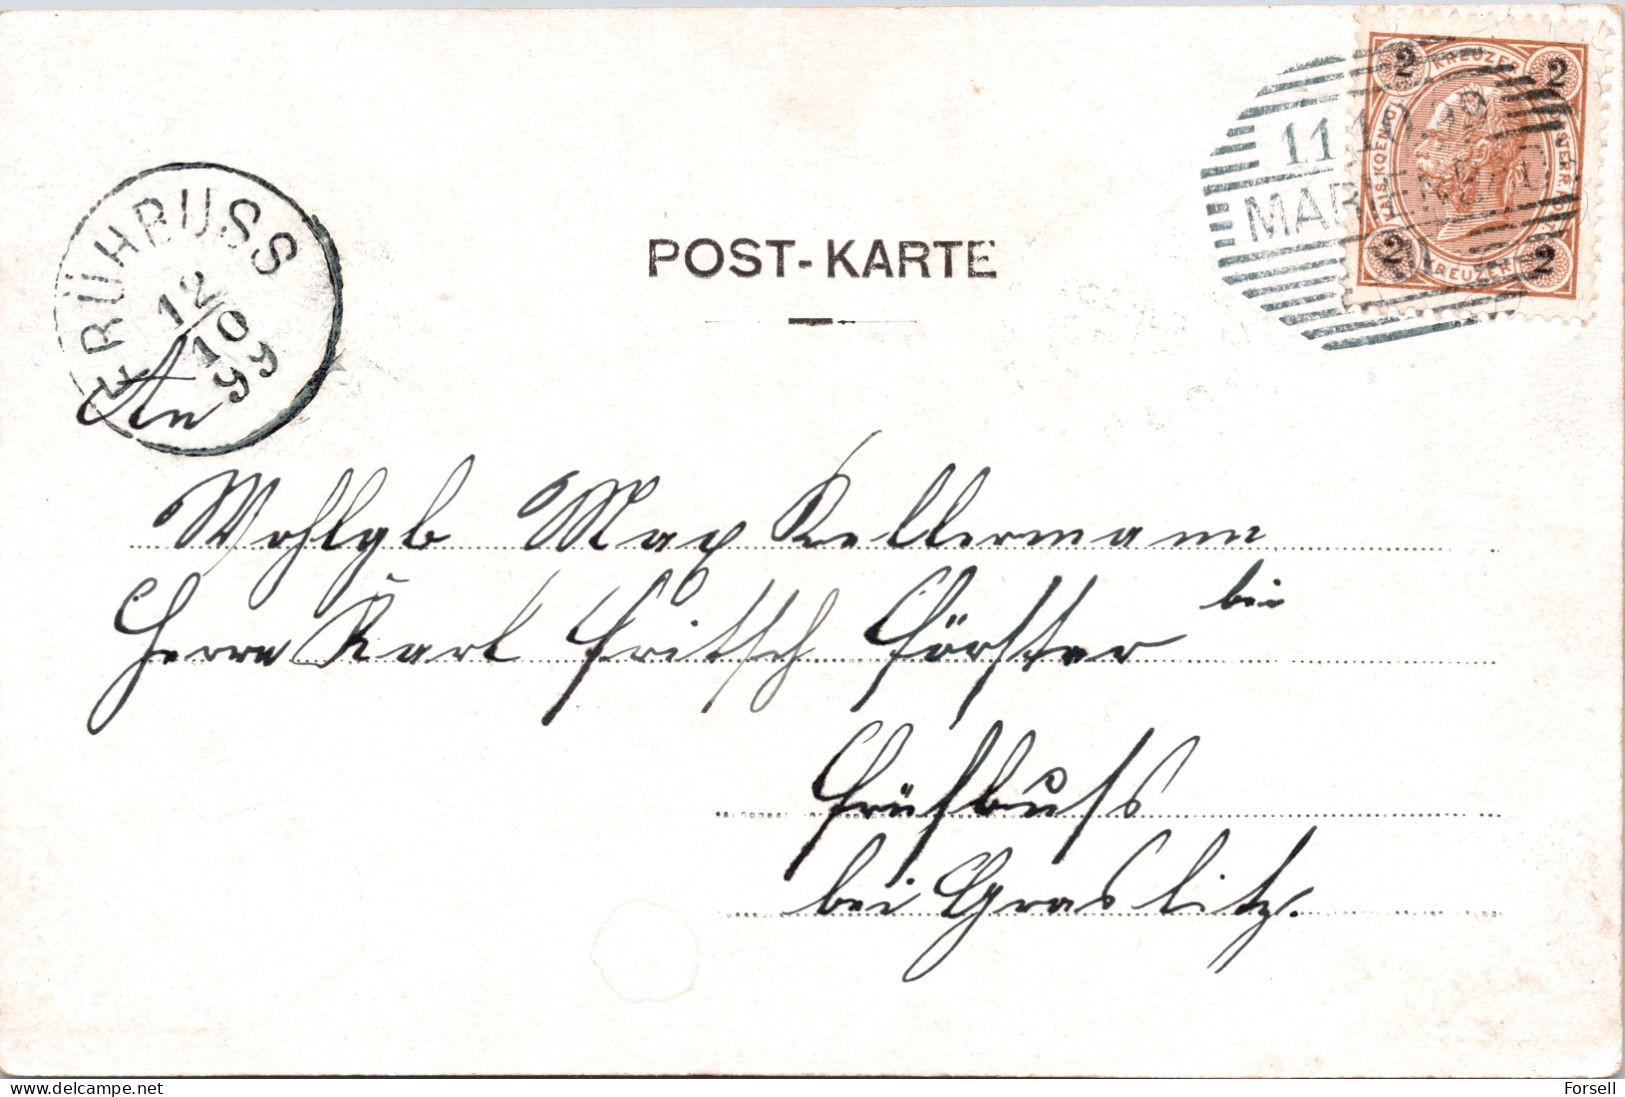 2 KREUZER 2
KAIS. KOENIGL. OESTERR. POST
2 KREUZER 2
11.10.99
MARIENBAD
POST-KARTE
FRÜHBUSS
12/10
99
An
Wohlgb Max Kellermann
bei
Herrn Karl Fritsch Förster
Frühbuss
bei Graslitz.
Forsell
delcampe.net